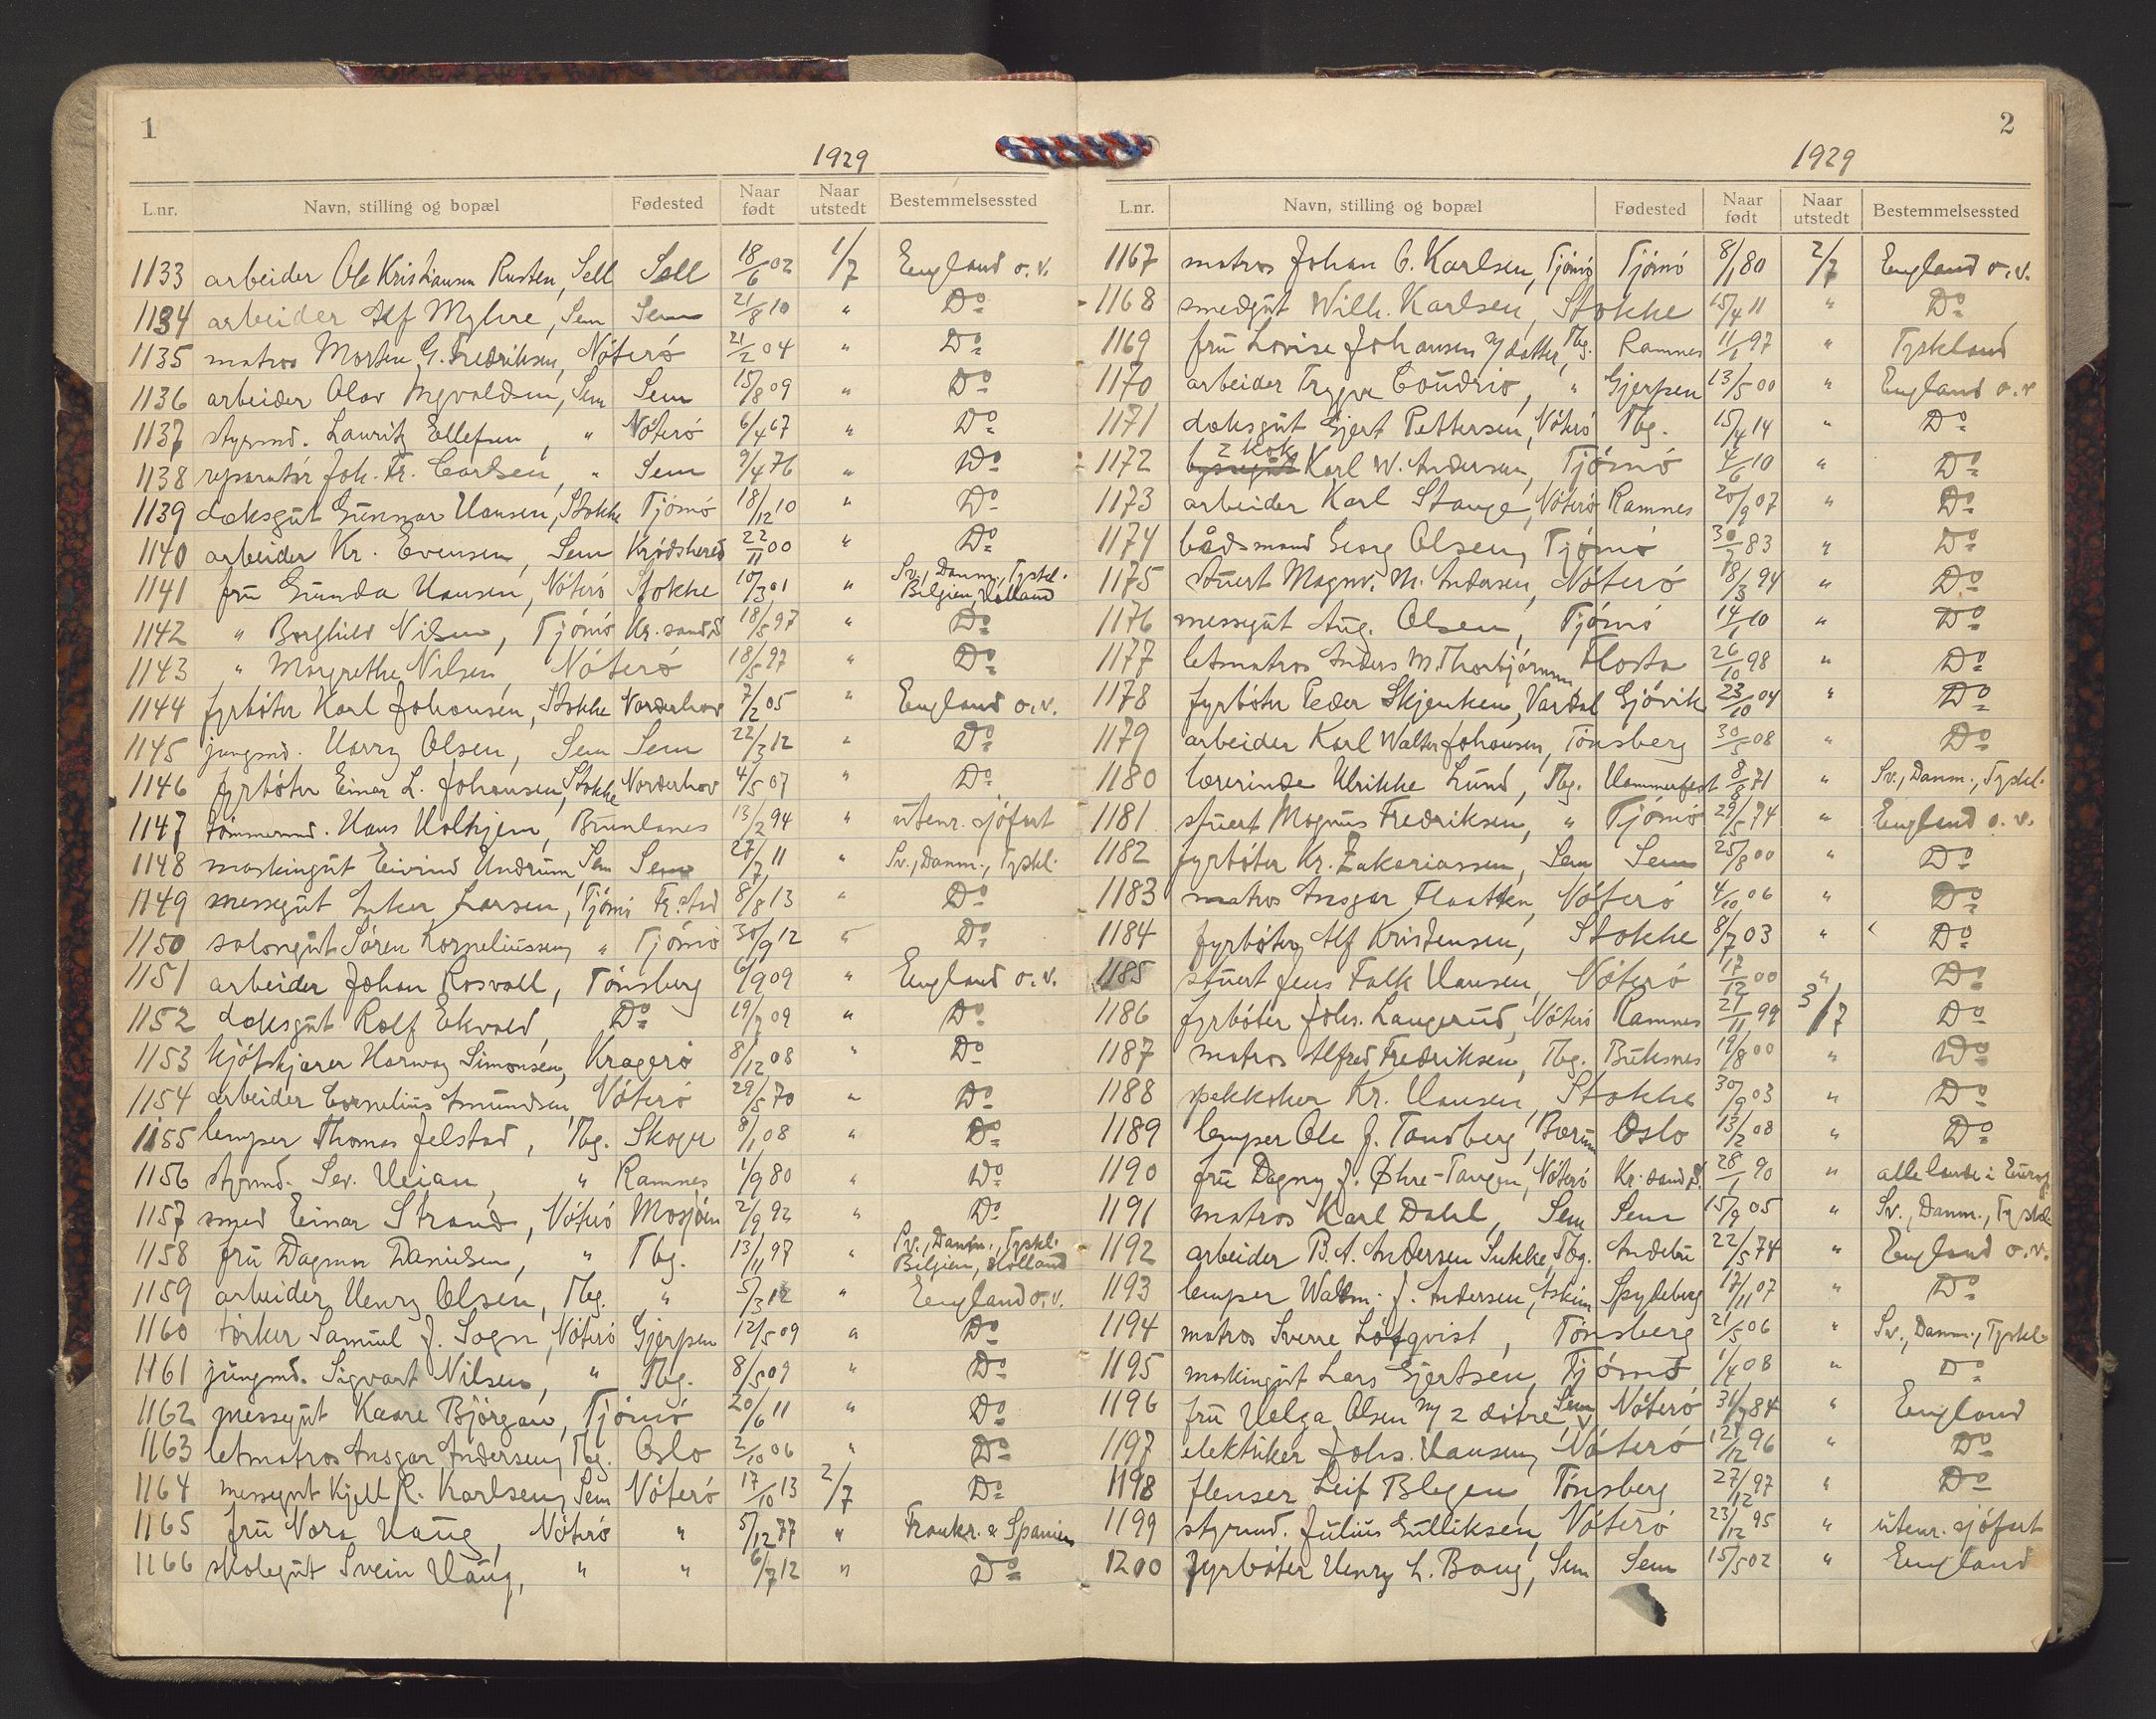 1
1929
L.nr. Navn, stilling og bopæl Fødested Naar født Naar utstedt Bestemmelsessted
1133 arbeider Ole Kristiansen Rusten, Sell Sell 18/6 02 1/7 England o.v.
1134 arbeider Alf Myhre, Sem Sem 21/8 10 " Do
1135 matros Morten G. Fredriksen, Nöterö 21/2 04 " Do
1136 arbeider Olav Ingvaldsen, Sem Sem 15/8 09 " Do
1137 styrmd. Lauritz Ellefsen, " Nöterö 6/4 67 " Do
1138 reparatör Joh. Fr. Carlsen, " Sem 9/4 76 " Do
1139 doksgut Gunnar Hansen, Stokke Tjömö 18/12 10 " Do
1140 arbeider Kr. Evensen, Sem Krödshered 22/11 00 " Do
1141 fru Gunda Hansen, Nöterö Stokke 10/3 01 " Sv., Danm., Tyskl. Belgien, Holland
1142 " Borghild Nilsen, Tjömö Kr.sand S 18/5 97 " Do
1143 " Margrethe Nilsen, Nöterö 18/5 97 " Do
1144 fyrböter Karl Johansen, Stokke Norderhov 7/2 05 " England o.v.
1145 jungmd. Harry Olsen, Sem Sem 22/3 12 " Do
1146 fyrböter Einar L. Johansen, Stokke Norderhov 4/5 07 " Do
1147 tömmermd. Hans Holhjem, Brunlanes 13/2 94 " utenr. sjöfart
1148 maskingut Eivind Undrum Sem Sem 27/7 11 " Sv., Danm., Tyskl.
1149 messegut Anker Larsen, Tjömö Fr.stad 8/8 13 " Do
1150 salongut Sören Korneliussen, " Tjömö 30/9 12 " Do
1151 arbeider Johan Rosvall, Tönsberg 6/9 09 " England o.v.
1152 doksgut Rolf Ekvald, Do 19/7 09 " Do
1153 kjötskjærer Harway Simonsen, Kragerö 8/12 08 " Do
1154 arbeider Cornelius Amundsen Nöterö 29/5 70 " Do
1155 lemper Thomas Jelstad, Tbg. Skoger 8/1 08 " Do
1156 styrmd. Sev. Heian, " Ramnes 1/9 80 " Do
1157 smed Einar Strand, Nöterö Mosjöen 2/9 92 " Do
1158 fru Dagmar Danielsen, " Tbg. 13/11 97 " Sv., Danm., Tyskl. Belgien, Holland
1159 arbeider Henry Olsen, Tbg. " 5/3 12 " England o.v.
1160 törker Samuel J. Sogn, Nöterö Gjerpen 12/5 09 " Do
1161 jungmd. Sigvart Nilsen, " Tbg. 8/5 09 " Do
1162 messegut Kaare Björgan, Tjömö 20/6 11 " Do
1163 letmatros Ansgar Andersen, Tbg. Oslo 2/10 06 " Do
1164 messegut Kjell R. Karlsen, Sem Nöterö 17/10 13 2/7 Do
1165 fru Nora Haug, Nöterö " 5/12 77 " Frankr. & Spanien
1166 skolegut Svein Haug, " " 6/7 12 " Do
2
1929
L.nr. Navn, stilling og bopæl Fødested Naar født Naar utstedt Bestemmelsessted
1167 matros Johan C. Karlsen, Tjömö Tjömö 8/1 80 2/7 England o.v.
1168 smedgut Wilh. Karlsen, Stokke 15/4 11 " Do
1169 fru Lovise Johansen m/datter, Tbg. Ramnes 11/1 97 " Tyskland
1170 arbeider Trygve Coudrio, " Gjerpen 13/5 00 " England o.v
1171 doksgut Gjert Pettersen, Nöterö Tbg. 15/4 14 " Do
1172 byssegut 2 kok Karl W. Andersen, Tjömö 4/6 10 " Do
1173 arbeider Karl Stange, Nöterö Ramnes 20/9 07 " Do
1174 bådsmand Georg Olsen, Tjömö 30/7 83 " Do
1175 stuert Magnv. M. Andersen, Nöterö 18/3 94 " Do
1176 messegut Aug. Olsen, Tjömö 14/1 10 " Do
1177 letmatros Anders M. Thorbjörnsen Flosta 26/10 98 " Do
1178 fyrböter Peder Skjenken, Vardal Gjövik 23/10 04 " Do
1179 arbeider Karl Walter Johansen, Tönsberg 30/5 08 " Do
1180 lærerinde Ulrikke Lund, Tbg. Hammerfest 8/8 71 " Sv., Danm., Tyskl.
1181 stuert Magnus Fredriksen, " Tjömö 29/5 74 " England o.v.
1182 fyrböter Kr. Zakariassen, Sem Sem 25/8 00 " Do
1183 matros Ansgar Flaatten, Nöterö 4/10 06 " Do
1184 fyrböter Alf Kristensen, Stokke 8/7 03 " Do
1185 stuert Jens Falk Hansen, Nöterö 17/12 00 " Do
1186 fyrböter Johs. Langerud, Nöterö Ramnes 21/11 99 3/7 Do
1187 matros Alfred Fredriksen, Tbg. Buksnes 19/8 00 " Do
1188 spekkoker Kr. Hansen, Stokke 30/9 03 " Do
1189 lemper Ole J. Tandberg, Bærum Oslo 13/2 08 " Do
1190 fru Dagny J. Øhre-Tangen, Nöterö Kr.sand S. 28/1 90 " alle lande i Europ
1191 matros Karl Dahl, Sem Sem 15/9 05 " Sv., Danm., Tyskl.
1192 arbeider B.A. Andersen Sukke, Tbg. Andebu 22/5 74 " England o.v.
1193 lemper Waldm. J. Andersen, Askim Spydeberg 17/11 07 " Do
1194 matros Sverre Löfqvist, Tönsberg 21/5 06 " Sv., Danm., Tyskl.
1195 maskingut Lars Gjertsen, Tjömö 1/4 08 " Do
1196 fru Helga Olsen m/ 2 dötre Sem Nöterö 31/7 84 " England
1197 elektriker Johs. Hansen, Nöterö 12/12 96 " Do
1198 flenser Leif Blegen, Tönsberg 27/12 97 " Do
1199 styrmd. Julius Gulliksen, Nöterö 23/12 95 " utenr. sjöfart
1200 fyrböter Henry L. Baug, Sem Sem 15/5 02 " England